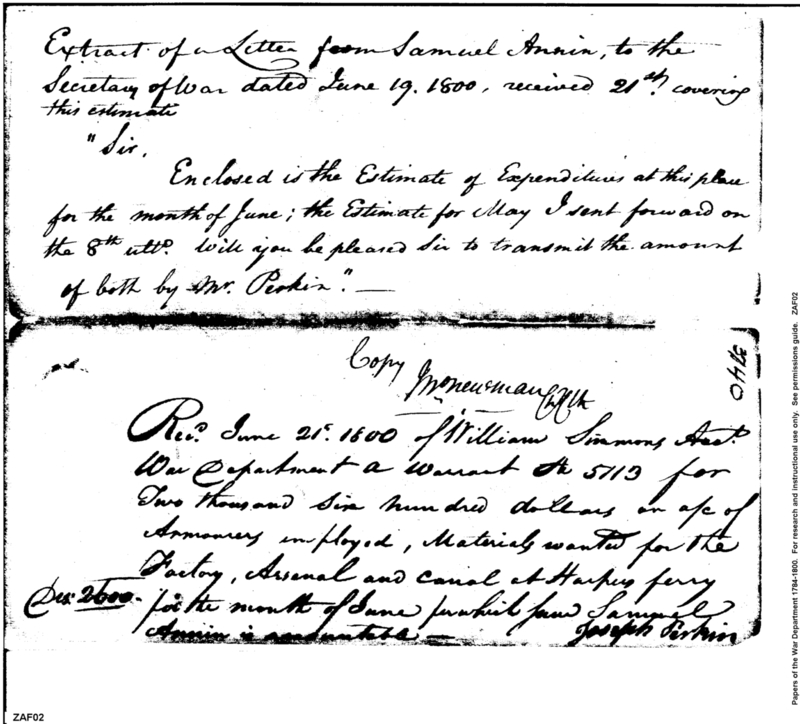 Extract of a Letter from Samuel Annin, to the
Secretary of War dated June 19. 1800, received 21st. covering
this estimate
"Sir,
Enclosed is the Estimate of Expenditures at this place
for the month of June; the Estimate for May I sent forward on
the 8th ulto. Will you be pleased Sir to transmit the amount
of both by Mr. Perkin." —
3740
Copy
Newman
Recd. June 21st. 1800 of William Simmons Acct.
War Department a warrant No 5113 for
Two thousand six hundred dollars on a/c of
Armourers employed, Materials wanted for the
Factory, Arsenal and canal at Harpers ferry
Drs. 2600.- for the month of June for which sum Samuel
Annin is accountable —
Joseph Perkin
Papers of the War Department 1784-1800. For research and instructional use only. See permissions guide. ZAF02
ZAF02